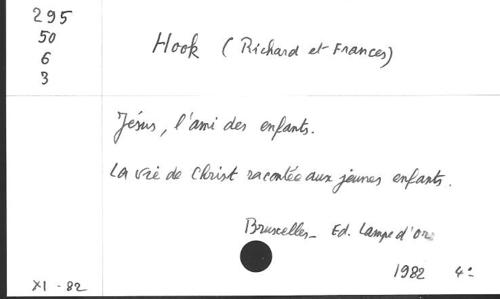 295
50
6
3
Hook (Richard et Frances)
Jésus, l'ami des enfants.
La vie de Christ racontée aux jeunes enfants.
Bruxelles_ Ed. Lampe d'Or
1982 4°
XI - 82